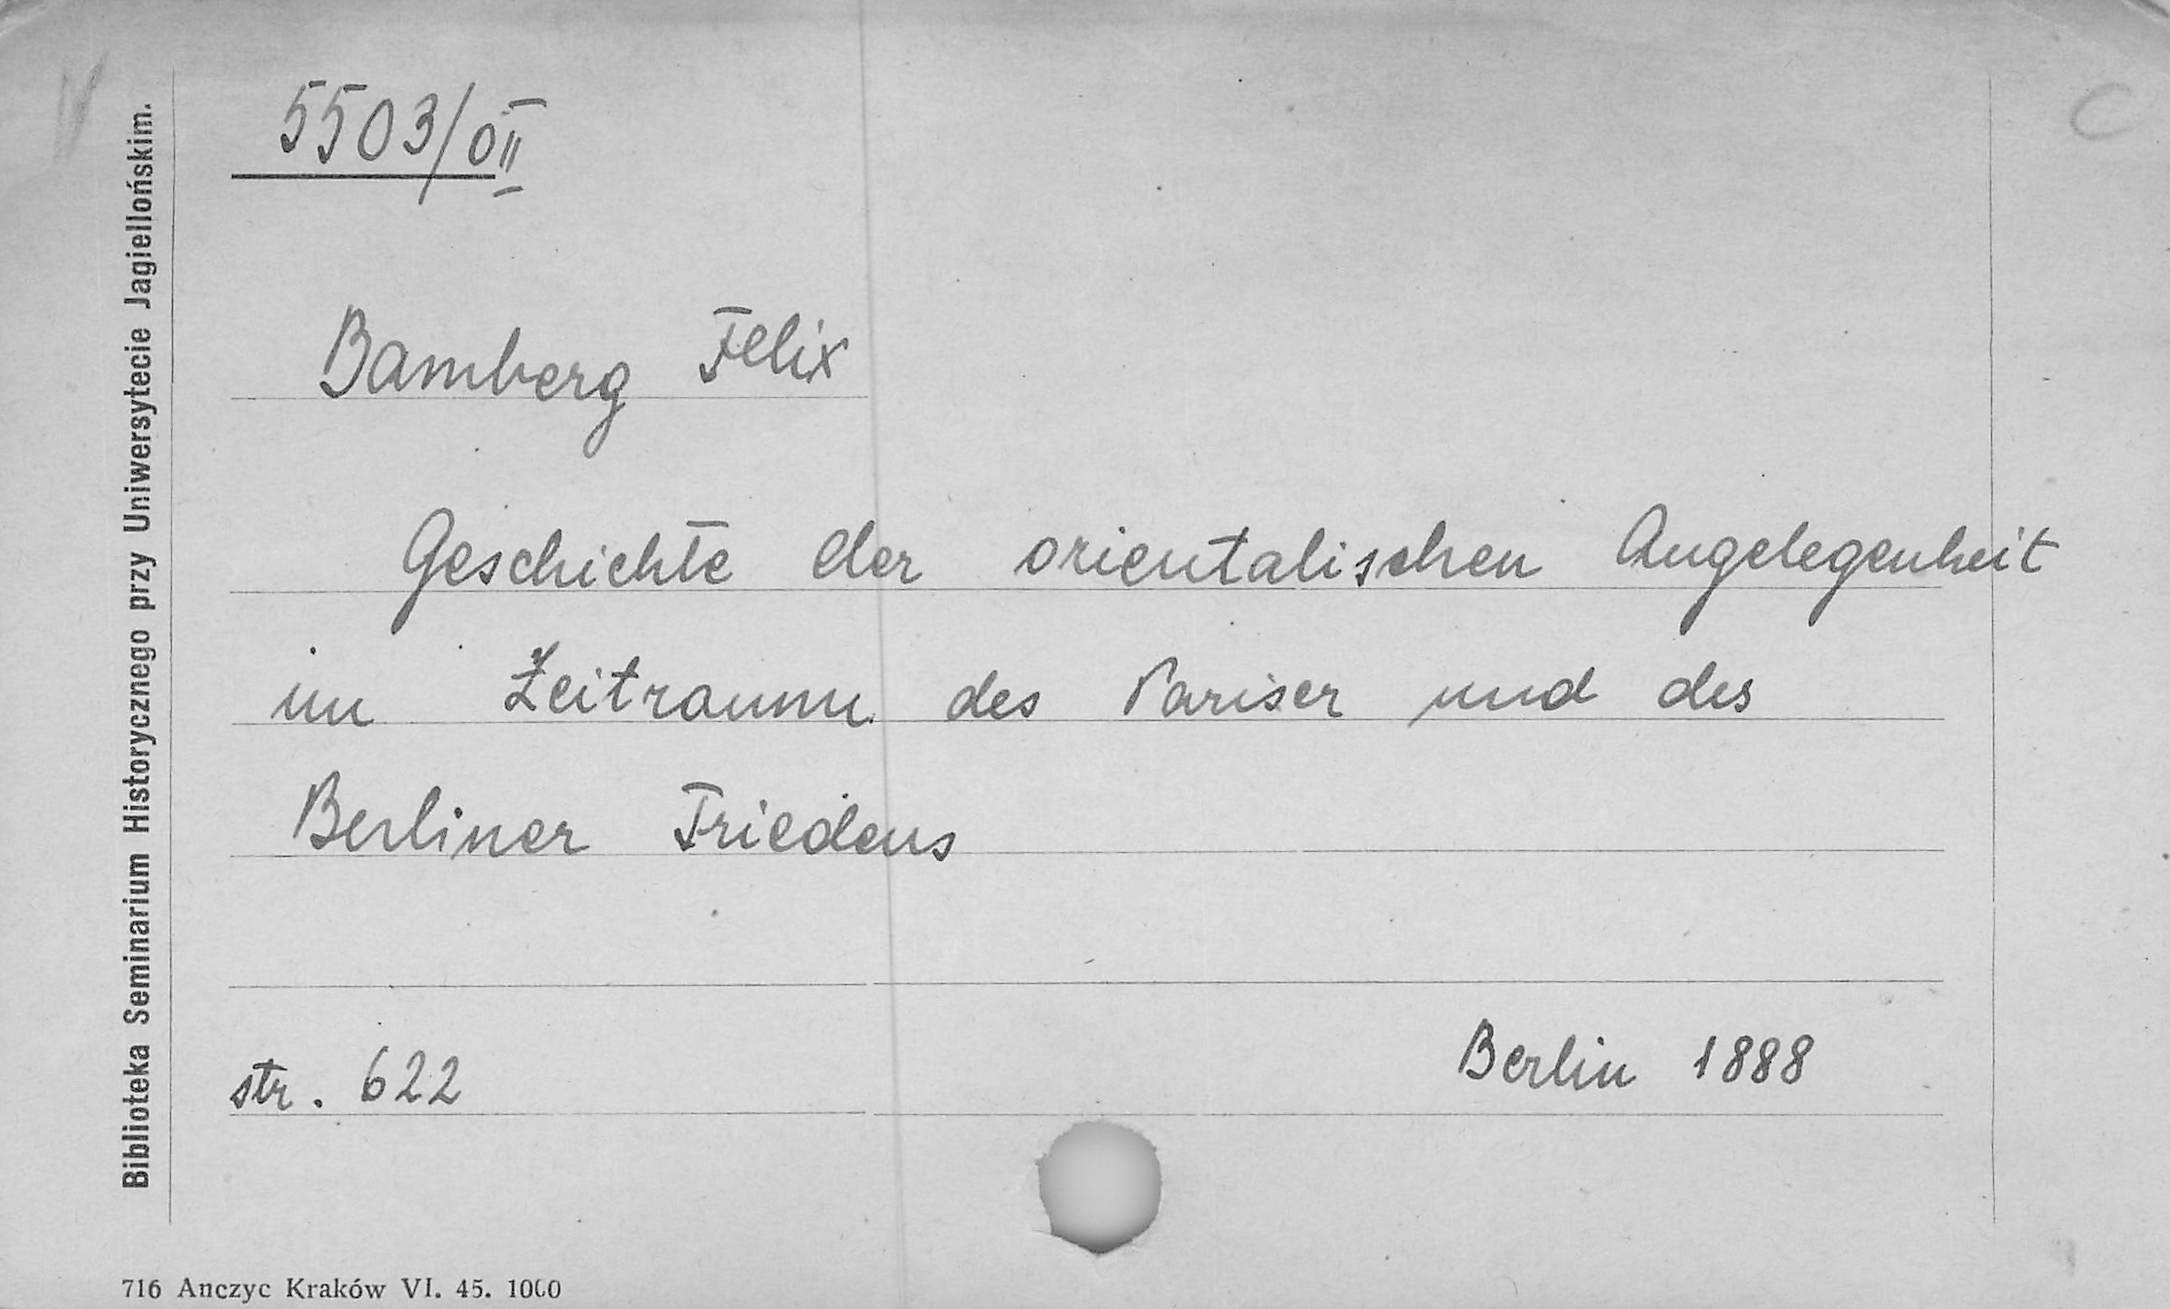 V
C
5503/0II
Bamberg Felix
Geschichte der orientalischen Angelegenheit
im Zeitraum des Pariser und des
Berliner Friedens
str. 622
Berlin 1888
Biblioteka Seminarium Historycznego przy Uniwersytecie Jagiellońskim.
716 Anczyc Kraków VI. 45. 1000